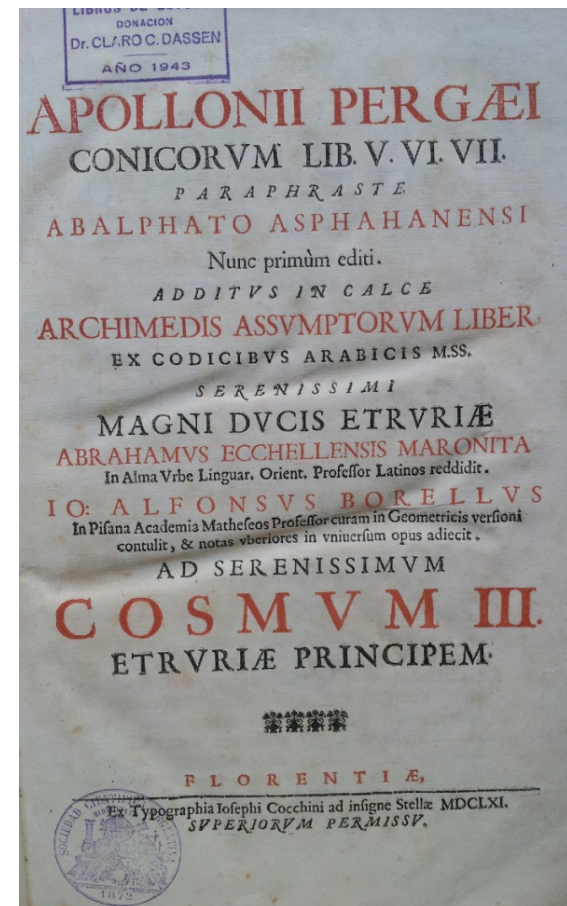 LIBROS DE
DONACION
Dr. CLARO C. DASSEN
AÑO 1943
APOLLONII PERGÆI
CONICORVM LIB. V. VI. VII.
PARAPHRASTE
ABALPHATO ASPHAHANENSI
Nunc primùm editi.
ADDITVS IN CALCE
ARCHIMEDIS ASSVMPTORVM LIBER,
EX CODICIBVS ARABICIS M.SS.
SERENISSIMI
MAGNI DVCIS ETRVRIÆ
ABRAHAMVS ECCHELLENSIS MARONITA
In Alma Vrbe Linguar. Orient. Profeſſor Latinos reddidit.
IO: ALFONSVS BORELLVS
In Piſana Academia Matheſeos Profeſſor curam in Geometricis verſioni
contulit, & notas vberiores in vniuerſum opus adiecit.
AD SERENISSIMVM
COSMVM III.
ETRVRIÆ PRINCIPEM.
FLORENTIÆ,
Ex Typographia Ioſephi Cocchini ad inſigne Stellæ MDCLXI.
SVPERIORVM PERMISSV.
SOCIEDAD CIENTIFICA
1872